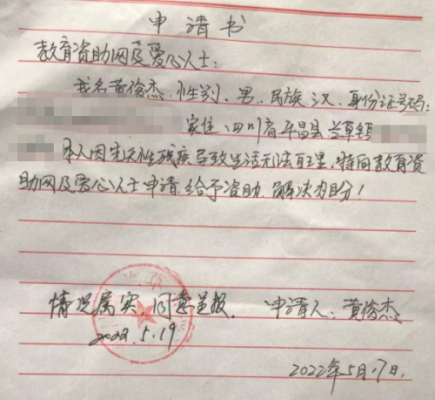 申请书
教育资助网及爱心人士:
我名黄俊杰,性别、男、民族汉、身份证号码:
家住、四川省平昌县兰草镇
本人因先天性残疾导致生活无法自理,特向教育资
助网及爱心人士申请给予资助,解决为盼!
情况属实 同意呈报. 申请人:黄俊杰
2022.5.19
2022年5月17日.